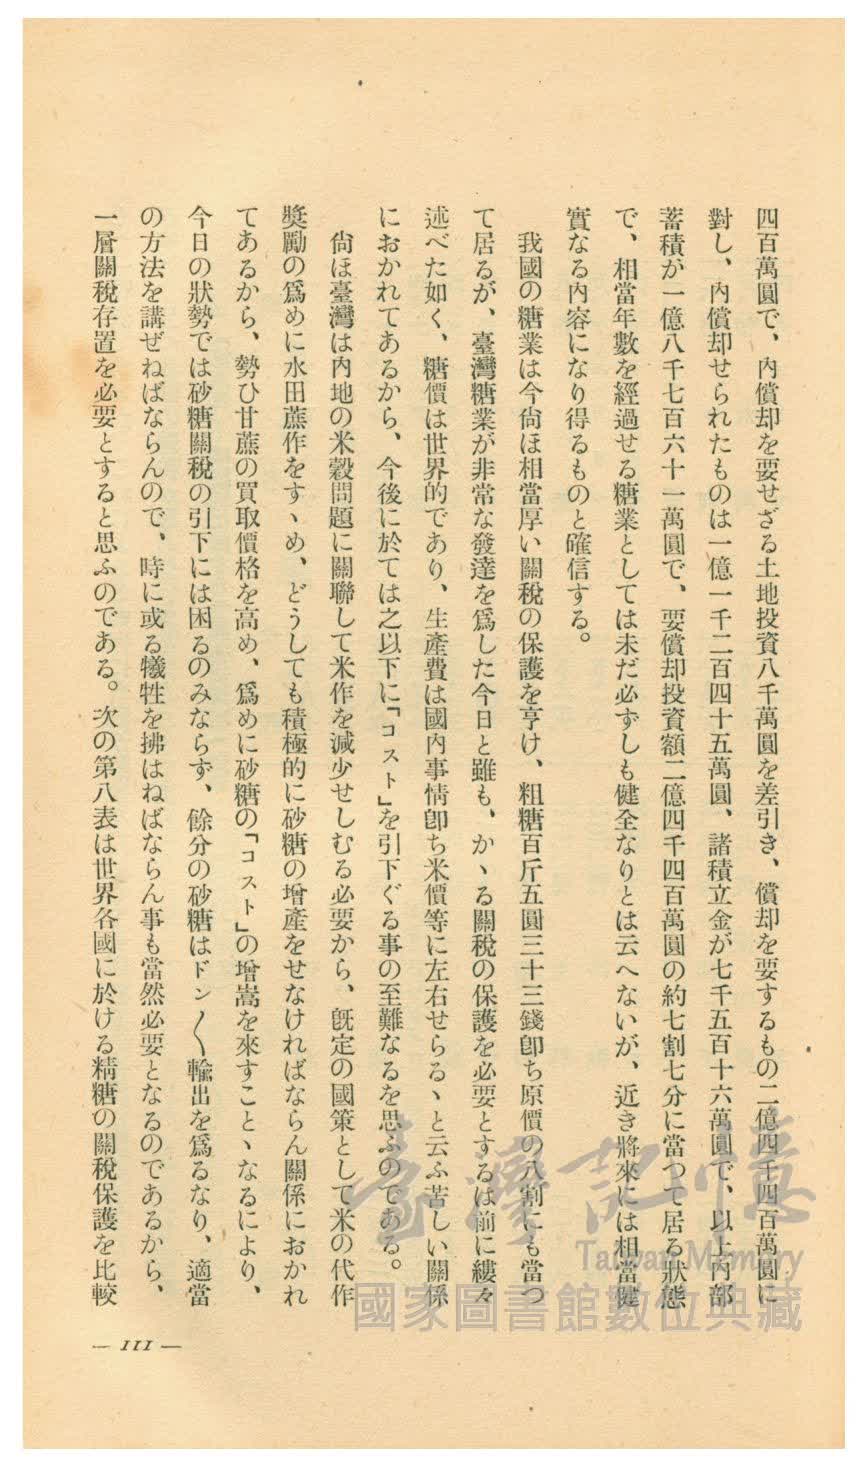 四百萬圓で、內償却を要せざる土地投資八千萬圓を差引き、償却を要するもの二億四千四百萬圓に
對し、內償却せられたものは一億一千二百四十五萬圓、諸積立金が七千五百十六萬圓で、以上內部
蓄積が一億八千七百六十一萬圓で、要償却投資額二億四千四百萬圓の約七割七分に當つて居る狀態
で、相當年數を經過せる糖業としては未だ必ずしも健全なりとは云へないが、近き將來には相當健
實なる內容になり得るものと確信する。
我國の糖業は今尙ほ相當厚い關稅の保護を亨け、粗糖百斤五圓三十三錢卽ち原價の八割にも當つ
て居るが、臺灣糖業が非常な發達を爲した今日と雖も、かゝる關稅の保護を必要とするは前に縷々
述べた如く、糖價は世界的であり、生產費は國內事情卽ち米價等に左右せらるゝと云ふ苦しい關係
におかれてあるから、今後に於ては之以下に「コスト」を引下ぐる事の至難なるを思ふのである。
尙ほ臺灣は內地の米穀問題に關聯して米作を減少せしむる必要から、旣定の國策として米の代作
奬勵の爲めに水田蔗作をすゝめ、どうしても積極的に砂糖の增產をせなければならん關係におかれ
てあるから、勢ひ甘蔗の買取價格を高め、爲めに砂糖の「コスト」の增嵩を來すことゝなるにより、
今日の狀勢では砂糖關稅の引下には困るのみならず、餘分の砂糖はドン〱輸出を爲るなり、適當
の方法を講ぜねばならんので、時に或る犧牲を拂はねばならん事も當然必要となるのであるから、
一層關稅存置を必要とすると思ふのである。次の第八表は世界各國に於ける精糖の關稅保護を比較
— 111 —
臺灣記憶
Taiwan Memory
國家圖書館數位典藏